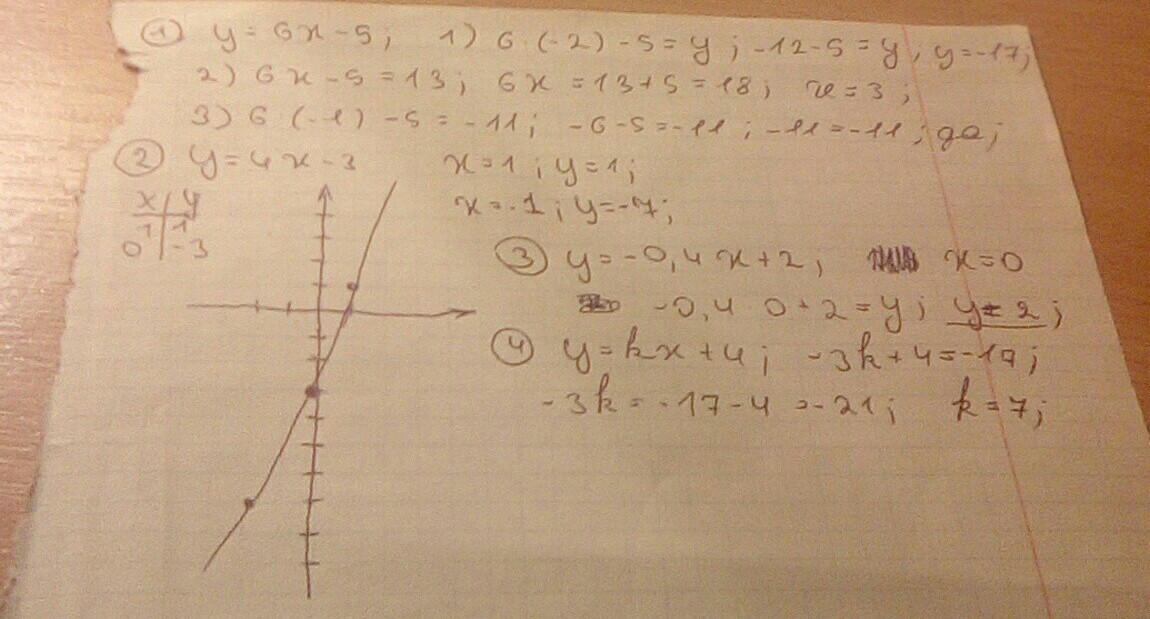 ① y = 6x - 5; 1) 6 · (-2) - 5 = y; -12 - 5 = y, y = -17;
2) 6x - 5 = 13; 6x = 13 + 5 = 18; x = 3;
3) 6 (-1) - 5 = -11; -6 - 5 = -11; -11 = -11; да;
② y = 4x - 3 x = 1; y = 1;
x = -1; y = -7;
x | y
1 | 1
0 | -3
③ y = -0,4x + 2; x = 0
-0,4 · 0 + 2 = y; y = 2;
④ y = kx + 4; -3k + 4 = -17;
-3k = -17 - 4 = -21; k = 7;